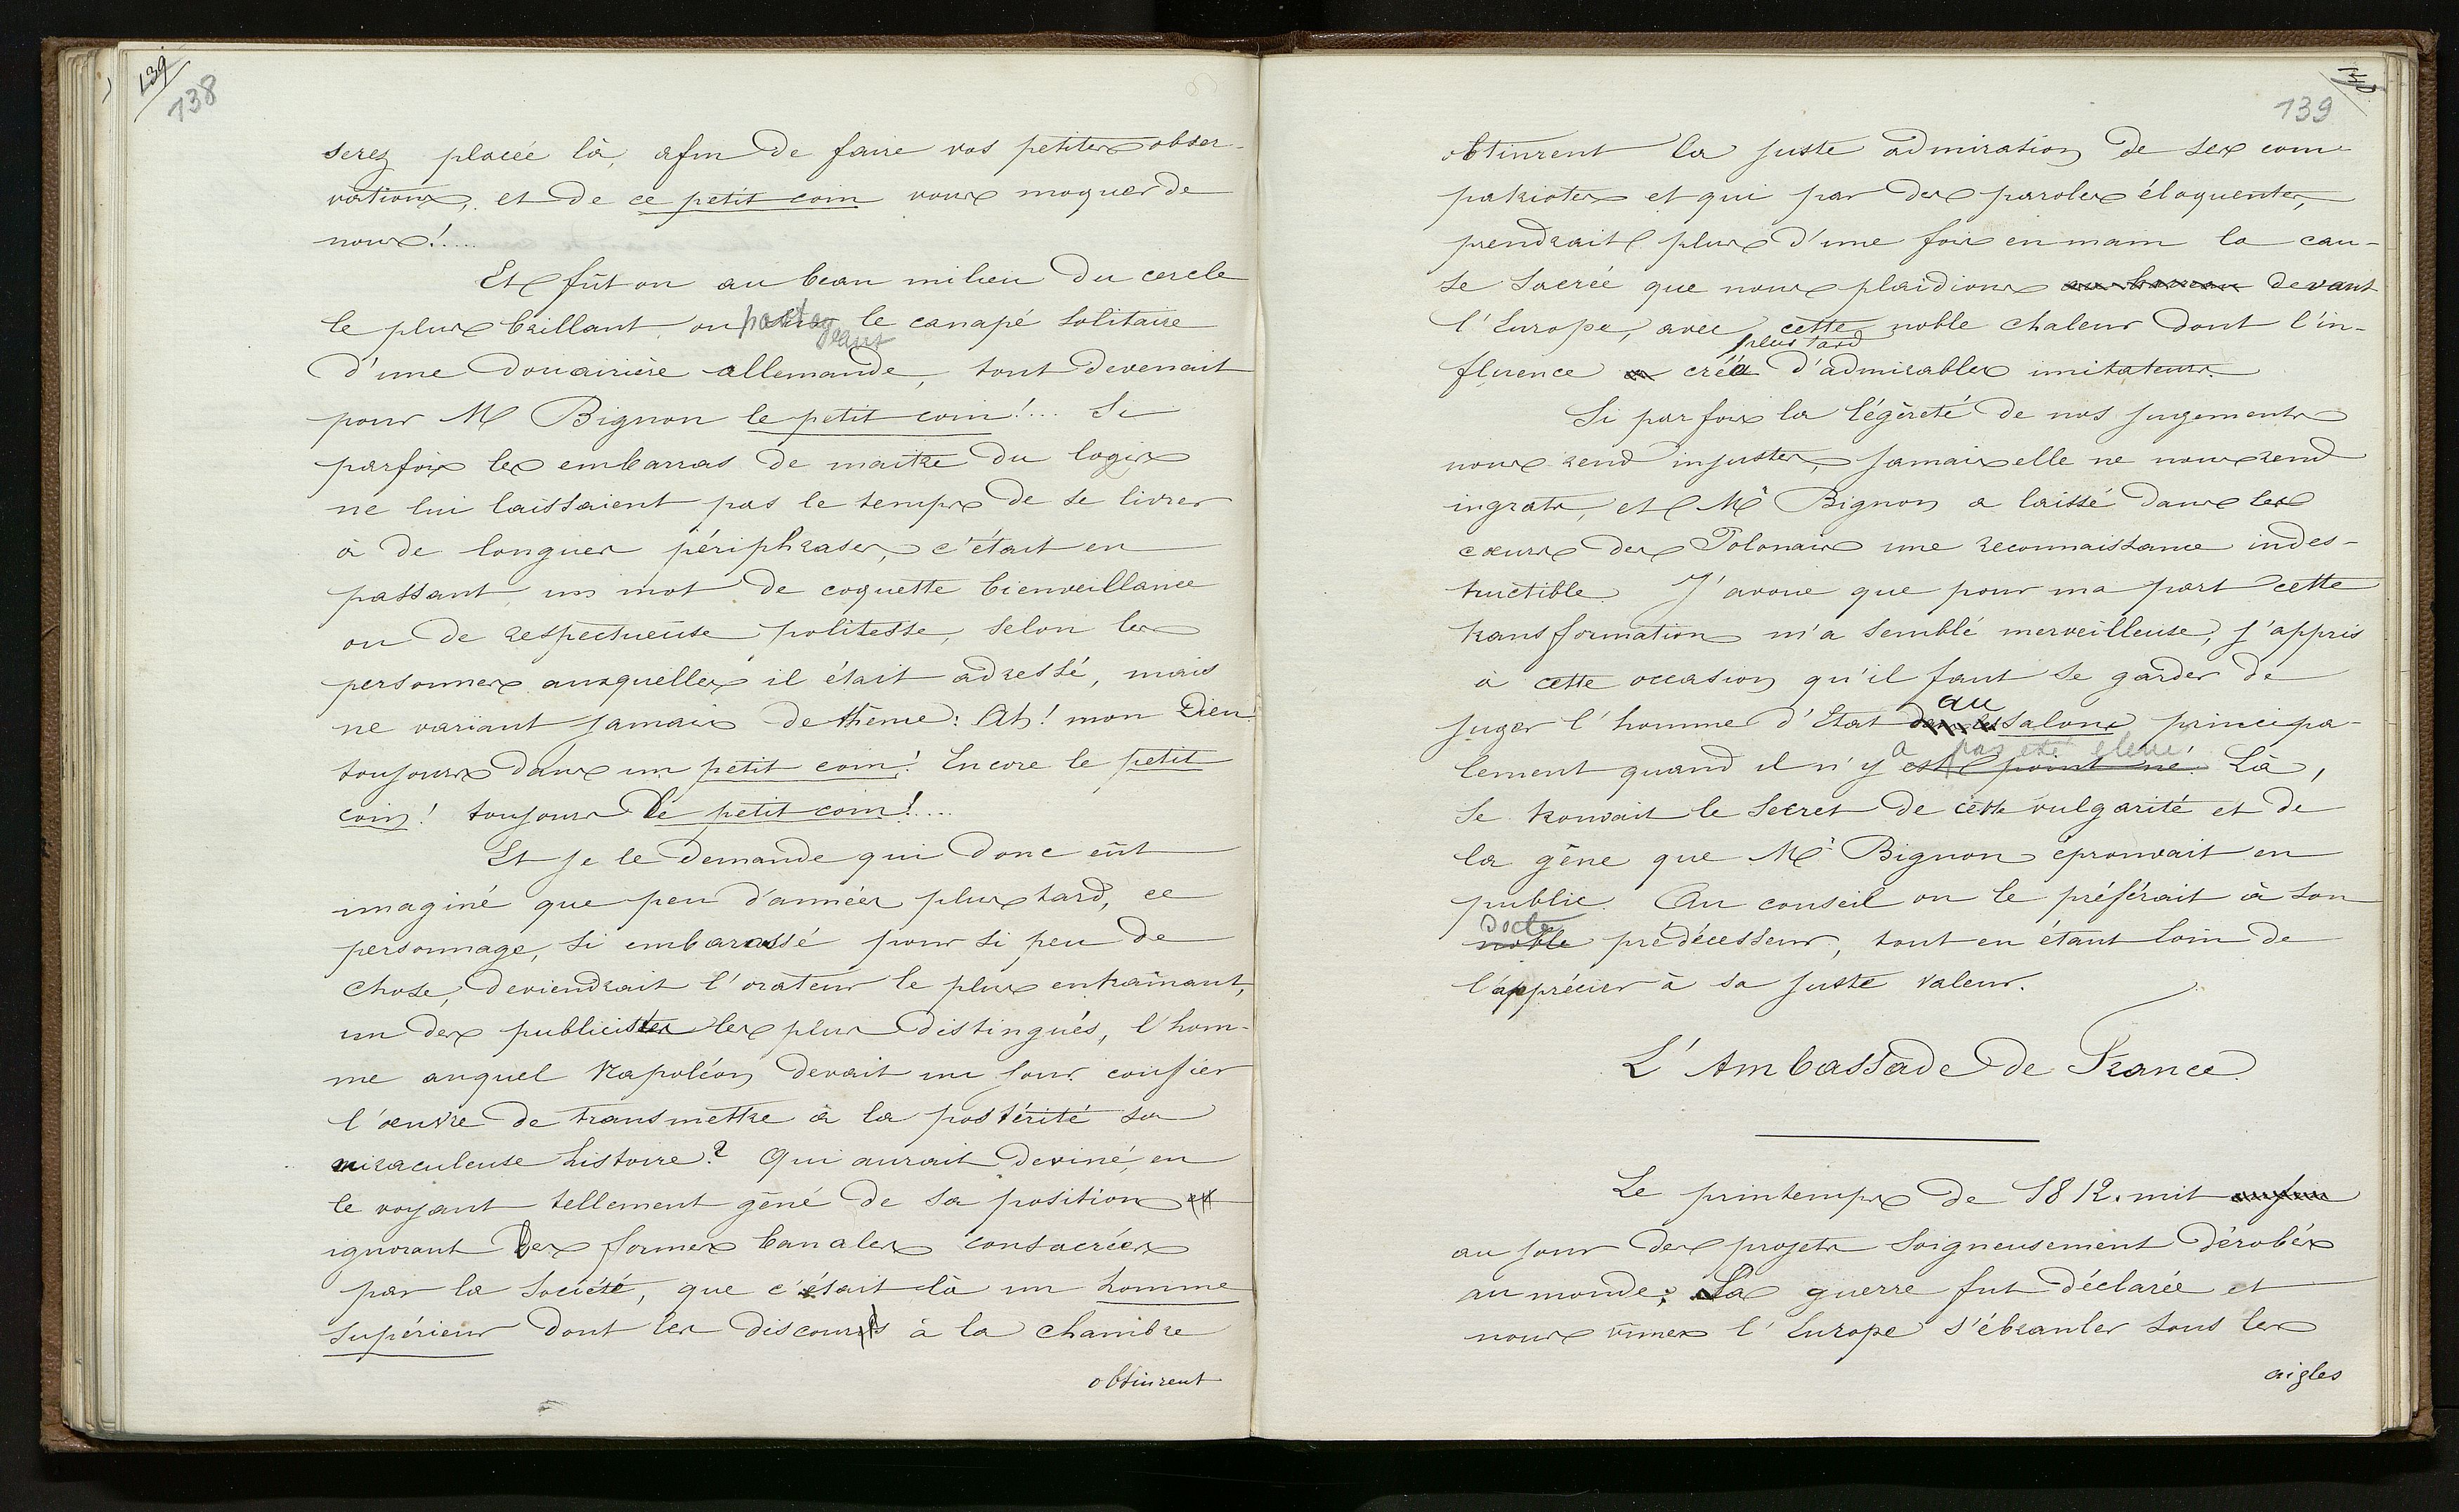 139
138
serez placée là, afin de faire vos petites obser-
vations, et de ce petit coin vous moquer de
nous!....
Et fût on au beau milieu du cercle
le plus brillant, ou partageant le canapé solitaire
d'une douairière allemande, tout devenait
pour M Bignon le petit coin!... Si
parfois les embarras de maitre du logis
ne lui laissaient pas le temps de se livrer
à de longues périphrases, c'était en
passant, un mot de coquette bienveillance
ou de respectueuse politesse, selon les
personnes auxquelles il était adressé, mais
ne variant jamais de thême: Ah! mon Dieu
toujours dans un petit coin! Encore le petit
coin! toujours le petit coin!....
Et je le demande qui donc eût
imaginé que peu d'années plus tard, ce
personnage, si embarassé pour si peu de
chose, deviendrait l'orateur le plus entraînant,
un des publicistes les plus distingués, l'hom-
me auquel Napoléon devait un jour confier
l'œuvre de transmettre à la postérité sa
miraculeuse histoire? Qui aurait deviné, en
le voyant tellement gêné de sa position et
ignorant les formes banales consacrées
par la société, que c'était là un homme
supérieur dont les discours à la chambre
obtinrent
139
obtinrent la juste admiration de ses com-
patriotes et qui par des paroles éloquentes,
prendrait plus d'une fois en main la cau-
se sacrée que nous plaidions devant
l'Europe, avec cette noble chaleur dont l'in-
plus tard
fluence a créa d'admirables imitateurs.
Si parfois la légèreté de nos jugements
nous rend injustes, jamais elle ne nous rend
ingrats, et Mr Bignon a laissé dans les
cœurs des Polonais une reconnaissance indes-
tructible. J'avoue que pour ma part cette
transformation m'a semblé merveilleuse, j'appris
à cette occasion qu'il faut se garder de
au
juger l'homme d'Etat dans les salons principa-
a pas été élevé
lement quand il n'y est point né. Là,
se trouvait le secret de cette vulgarité et de
la gêne que Mr Bignon éprouvait en
public. Au conseil on le préférait à son
docte
noble prédécesseur, tout en étant loin de
l'apprécier à sa juste valeur.
L'Ambassade de France.
Le printemps de 1812. mit
au jour des projets soigneusement dérobés
au monde; La guerre fut déclarée et
nous vimes l'Europe s'ébranler sous les
aigles